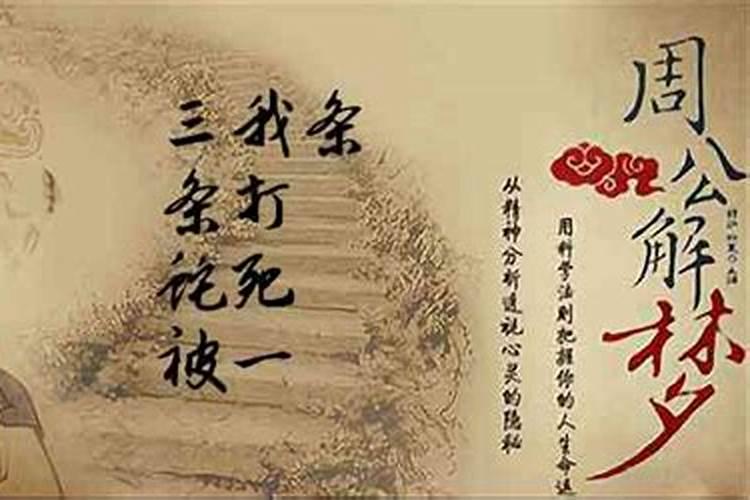 三条蛇被
我打死一
条
周公解梦
用科学法则把握你的人生命运
从精神分析透视心灵的隐秘